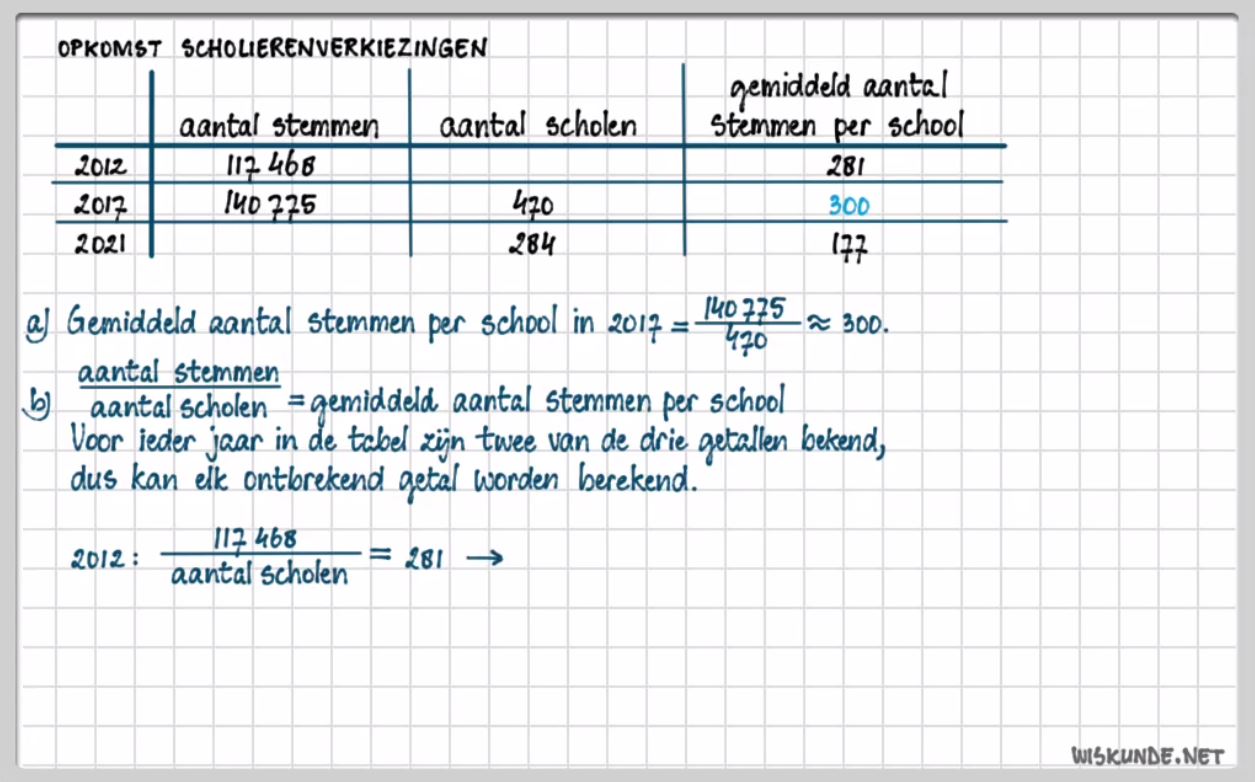 OPKOMST SCHOLIERENVERKIEZINGEN
gemiddeld aantal
aantal stemmen aantal scholen stemmen per school
2012 117 468 281
2017 140 775 470 300
2021 284 177
a) Gemiddeld aantal stemmen per school in 2017 = 140 775 / 470 ≈ 300.
b) aantal stemmen / aantal scholen = gemiddeld aantal stemmen per school
Voor ieder jaar in de tabel zijn twee van de drie getallen bekend,
dus kan elk ontbrekend getal worden berekend.
2012: 117 468 / aantal scholen = 281 →
WISKUNDE.NET